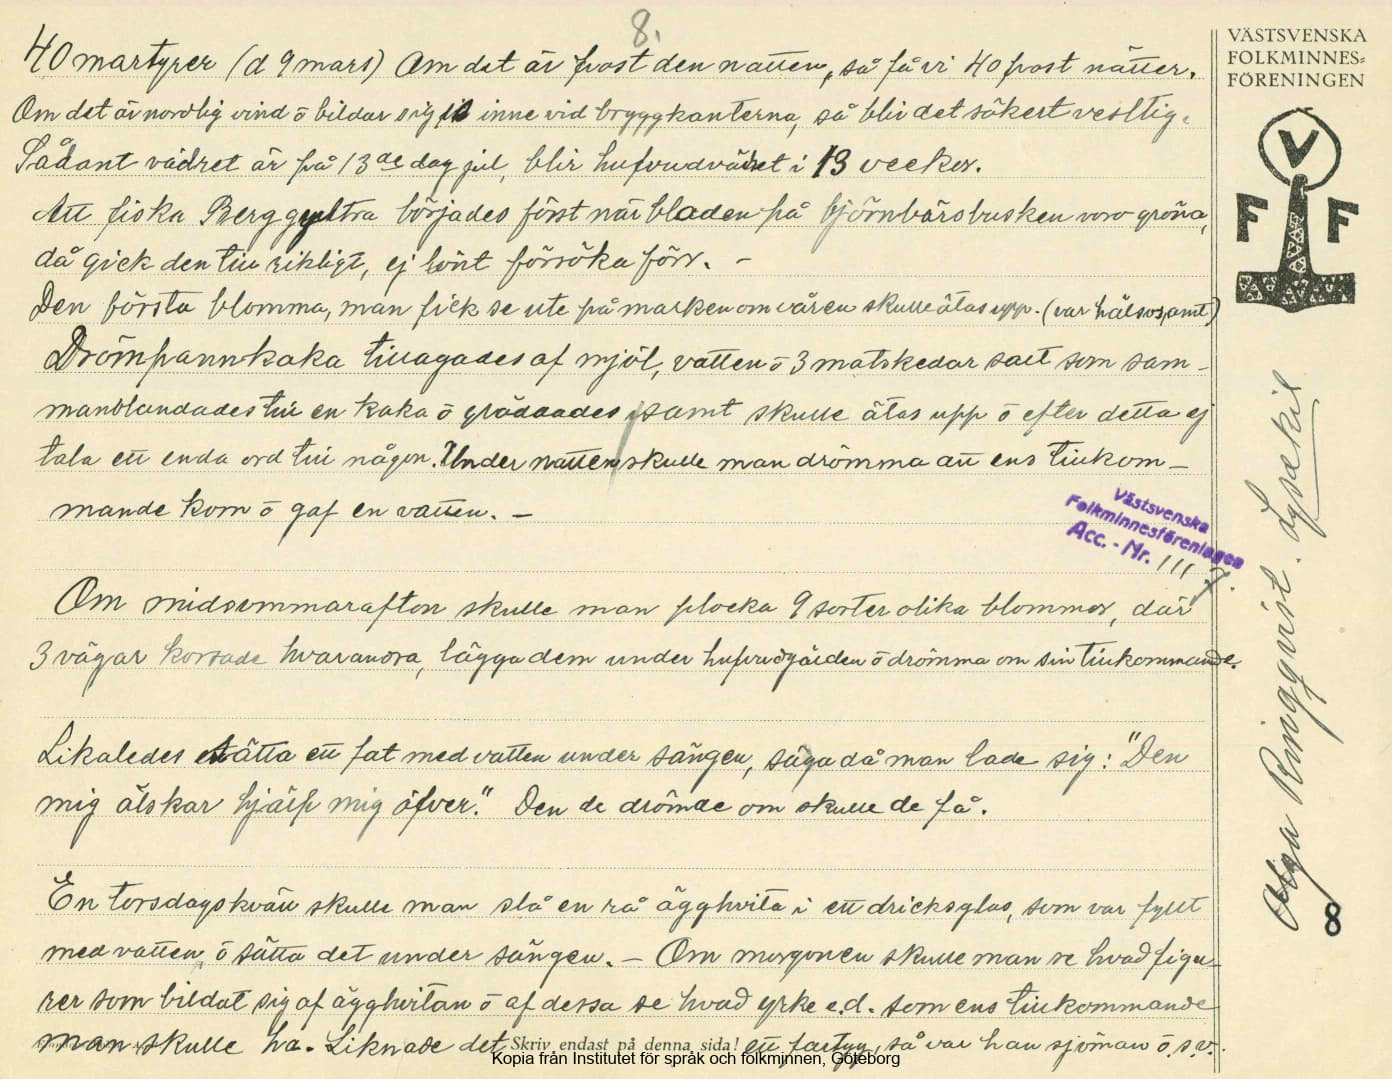 8.
40 martyrer (d 9 mars) Om det är frost den natten, så få vi 40 frost nätter.
Om det är nordlig vind ō bildar sig is inne vid bryggkanterna, så blir det säkert vestlig.
Sådant vädret är på 13de dag jul, blir hufvudvädret i 13 veckor.
Att fiska Berggyltra börjades först när bladen på björnbärsbusken voro gröna,
då gick den till rikligt, ej lönt försöka förr. –
Den första blomma, man fick se ute på marken om våren skulle ätas upp. (var hälsosamt)
Drömpannkaka tillagades af mjöl, vatten ō 3 matskedar salt som sam-
manblandades till en kaka ō gräddades samt skulle ätas upp ō efter detta ej
tala ett enda ord till någon. Under natten skulle man drömma att ens tillkom-
mande kom ō gaf en vatten. –
Om midsommarafton skulle man plocka 9 sorter olika blommor, där
3 vägar korsade hvarandra, lägga dem under hufvudgärden ō drömma om sin tillkommande.
Likaledes sätta ett fat med vatten under sängen, säga då man lade sig: "Den
mig älskar hjälp mig öfver." Den de drömde om skulle de få.
En torsdagskväll skulle man slå en rå ägghvita i ett dricksglas, som var fyllt
med vatten, ō sätta det under sängen. – Om morgonen skulle man se hvad figu-
rer som bildat sig af ägghvitan ō af dessa se hvad yrke e.d. som ens tillkommande
man skulle ha. Liknade det ett fartyg, så var han sjöman o.s.v.
Skriv endast på denna sida!
Kopia från Institutet för språk och folkminnen, Göteborg
VÄSTSVENSKA
FOLKMINNES-
FÖRENINGEN
V
F F
Västsvenska
Folkminnesföreningen
Acc. - Nr. 1117.
Olga Ringqvist. Lysekil
8